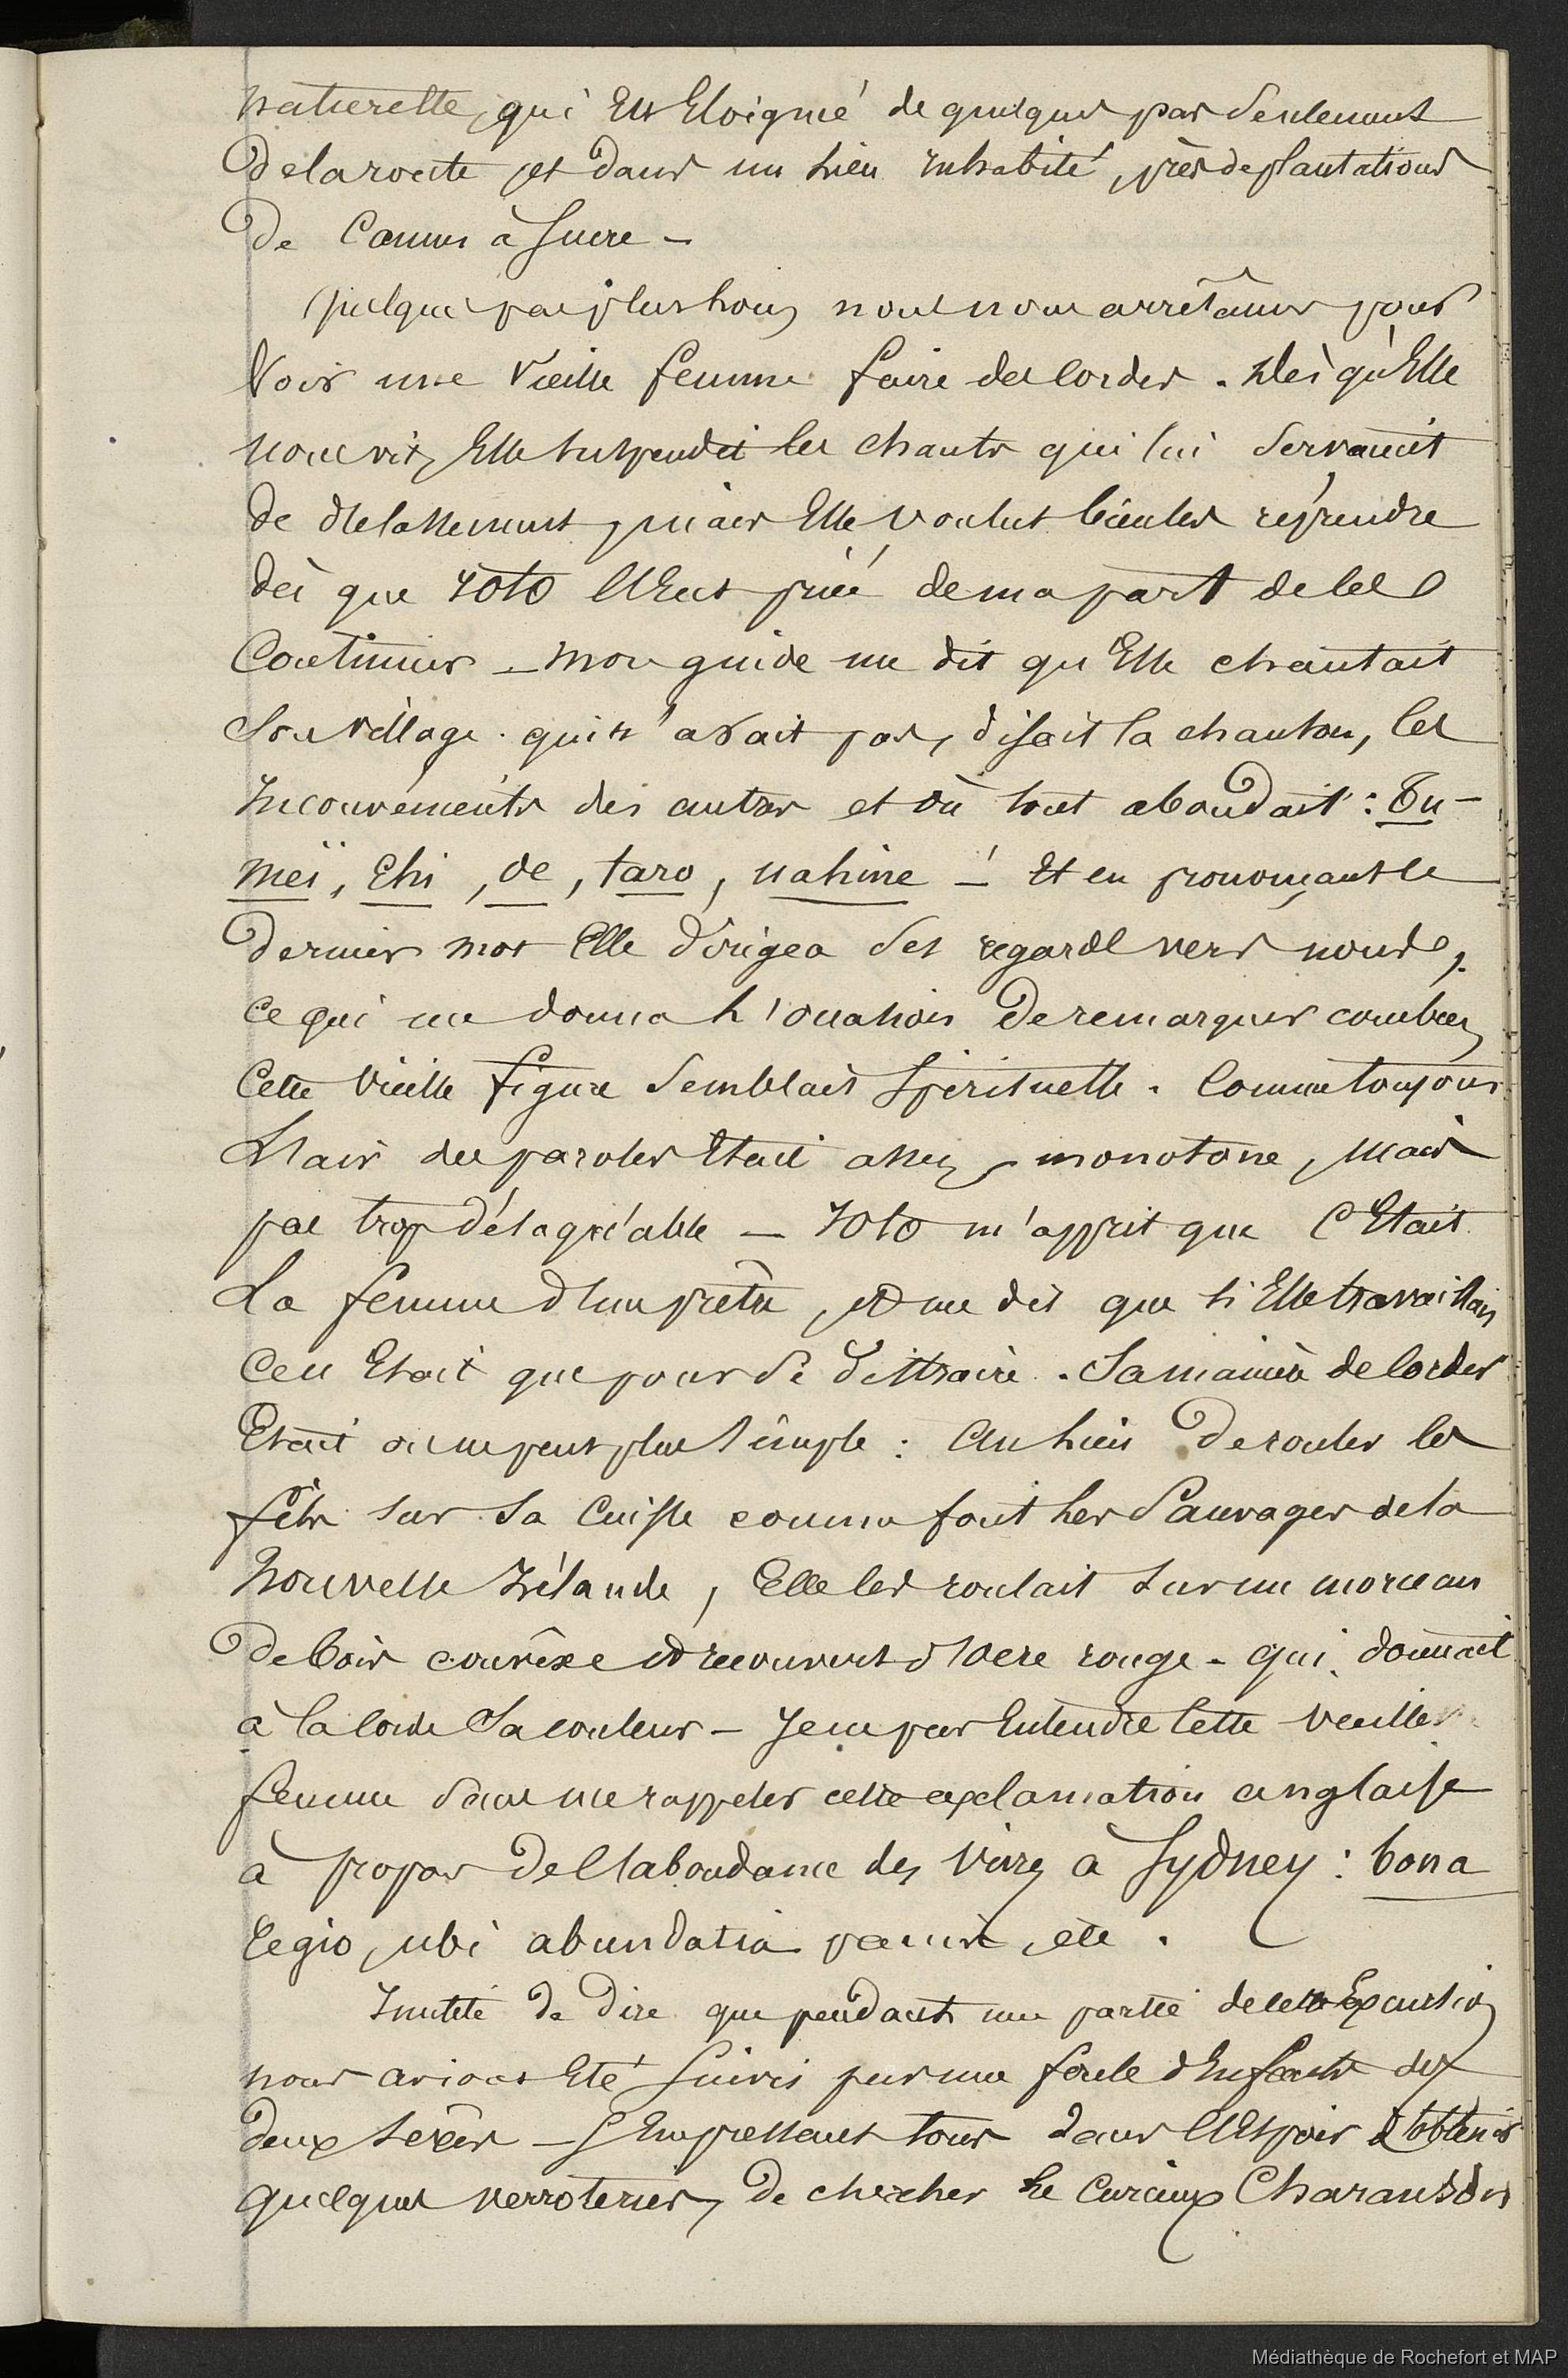 naturelle, qui Est Eloigné de quelques pas Seulement
de la route et dans un lieu inhabité, près de plantations
de Cannes à Sucre –
Quelques pas plus loin, nous nous arrêtâmes pour
Voir une Vieille femme faire des Cordes. Dès qu'Elle
nous vit, Elle suspendit les chants qui lui Servaient
de délassement, mais Elle voulut bien les reprendre
dès que Toto l'Eut priée de ma part de les
Continuer – Mon guide me dit qu'Elle chantait
Son village qui n'avait pas, disait la chanson, les
Inconvénients des autres et où tout abondait :
Meï, Ehi, oe, taro, vahine – ! Et en prononçant le
dernier mot Elle dirigea Ses regards vers nous,
Ce qui me donna l'occasion de remarquer combien
Cette Vieille figure Semblait Spirituelle. Comme toujours
L'air des paroles Etait assez monotone, Mais
pas trop désagréable – Toto m'apprit que C'Etait
La femme d'un prêtre, et me dit que si Elle travaillait
Ce n'Etait que pour Se distraire. Sa manière de Corder
Etait on ne peut plus Simple : Au lieu de rouler les
fils sur sa Cuisse comme font les Sauvages de la
Nouvelle Irlande, Elle les roulait sur un morceau
de bois convexe et recouvert d'ocre rouge – qui donnait
à la Corde Sa couleur – Je ne pus Entendre Cette Vieille
femme Sans me rappeler cette exclamation anglaise
à propos de l'abondance des Vivres à Sydney : bona
regio, ubi abundatia panis, etc.
Inutile de dire que pendant une partie de cette Excursion
nous avions Eté Suivis par une foule d'Enfants des
deux Sexes – S'Empressant tous dans l'Espoir d'obtenir
quelques verroteries, de chercher les Curieux Charansons
Médiathèque de Rochefort et MAP